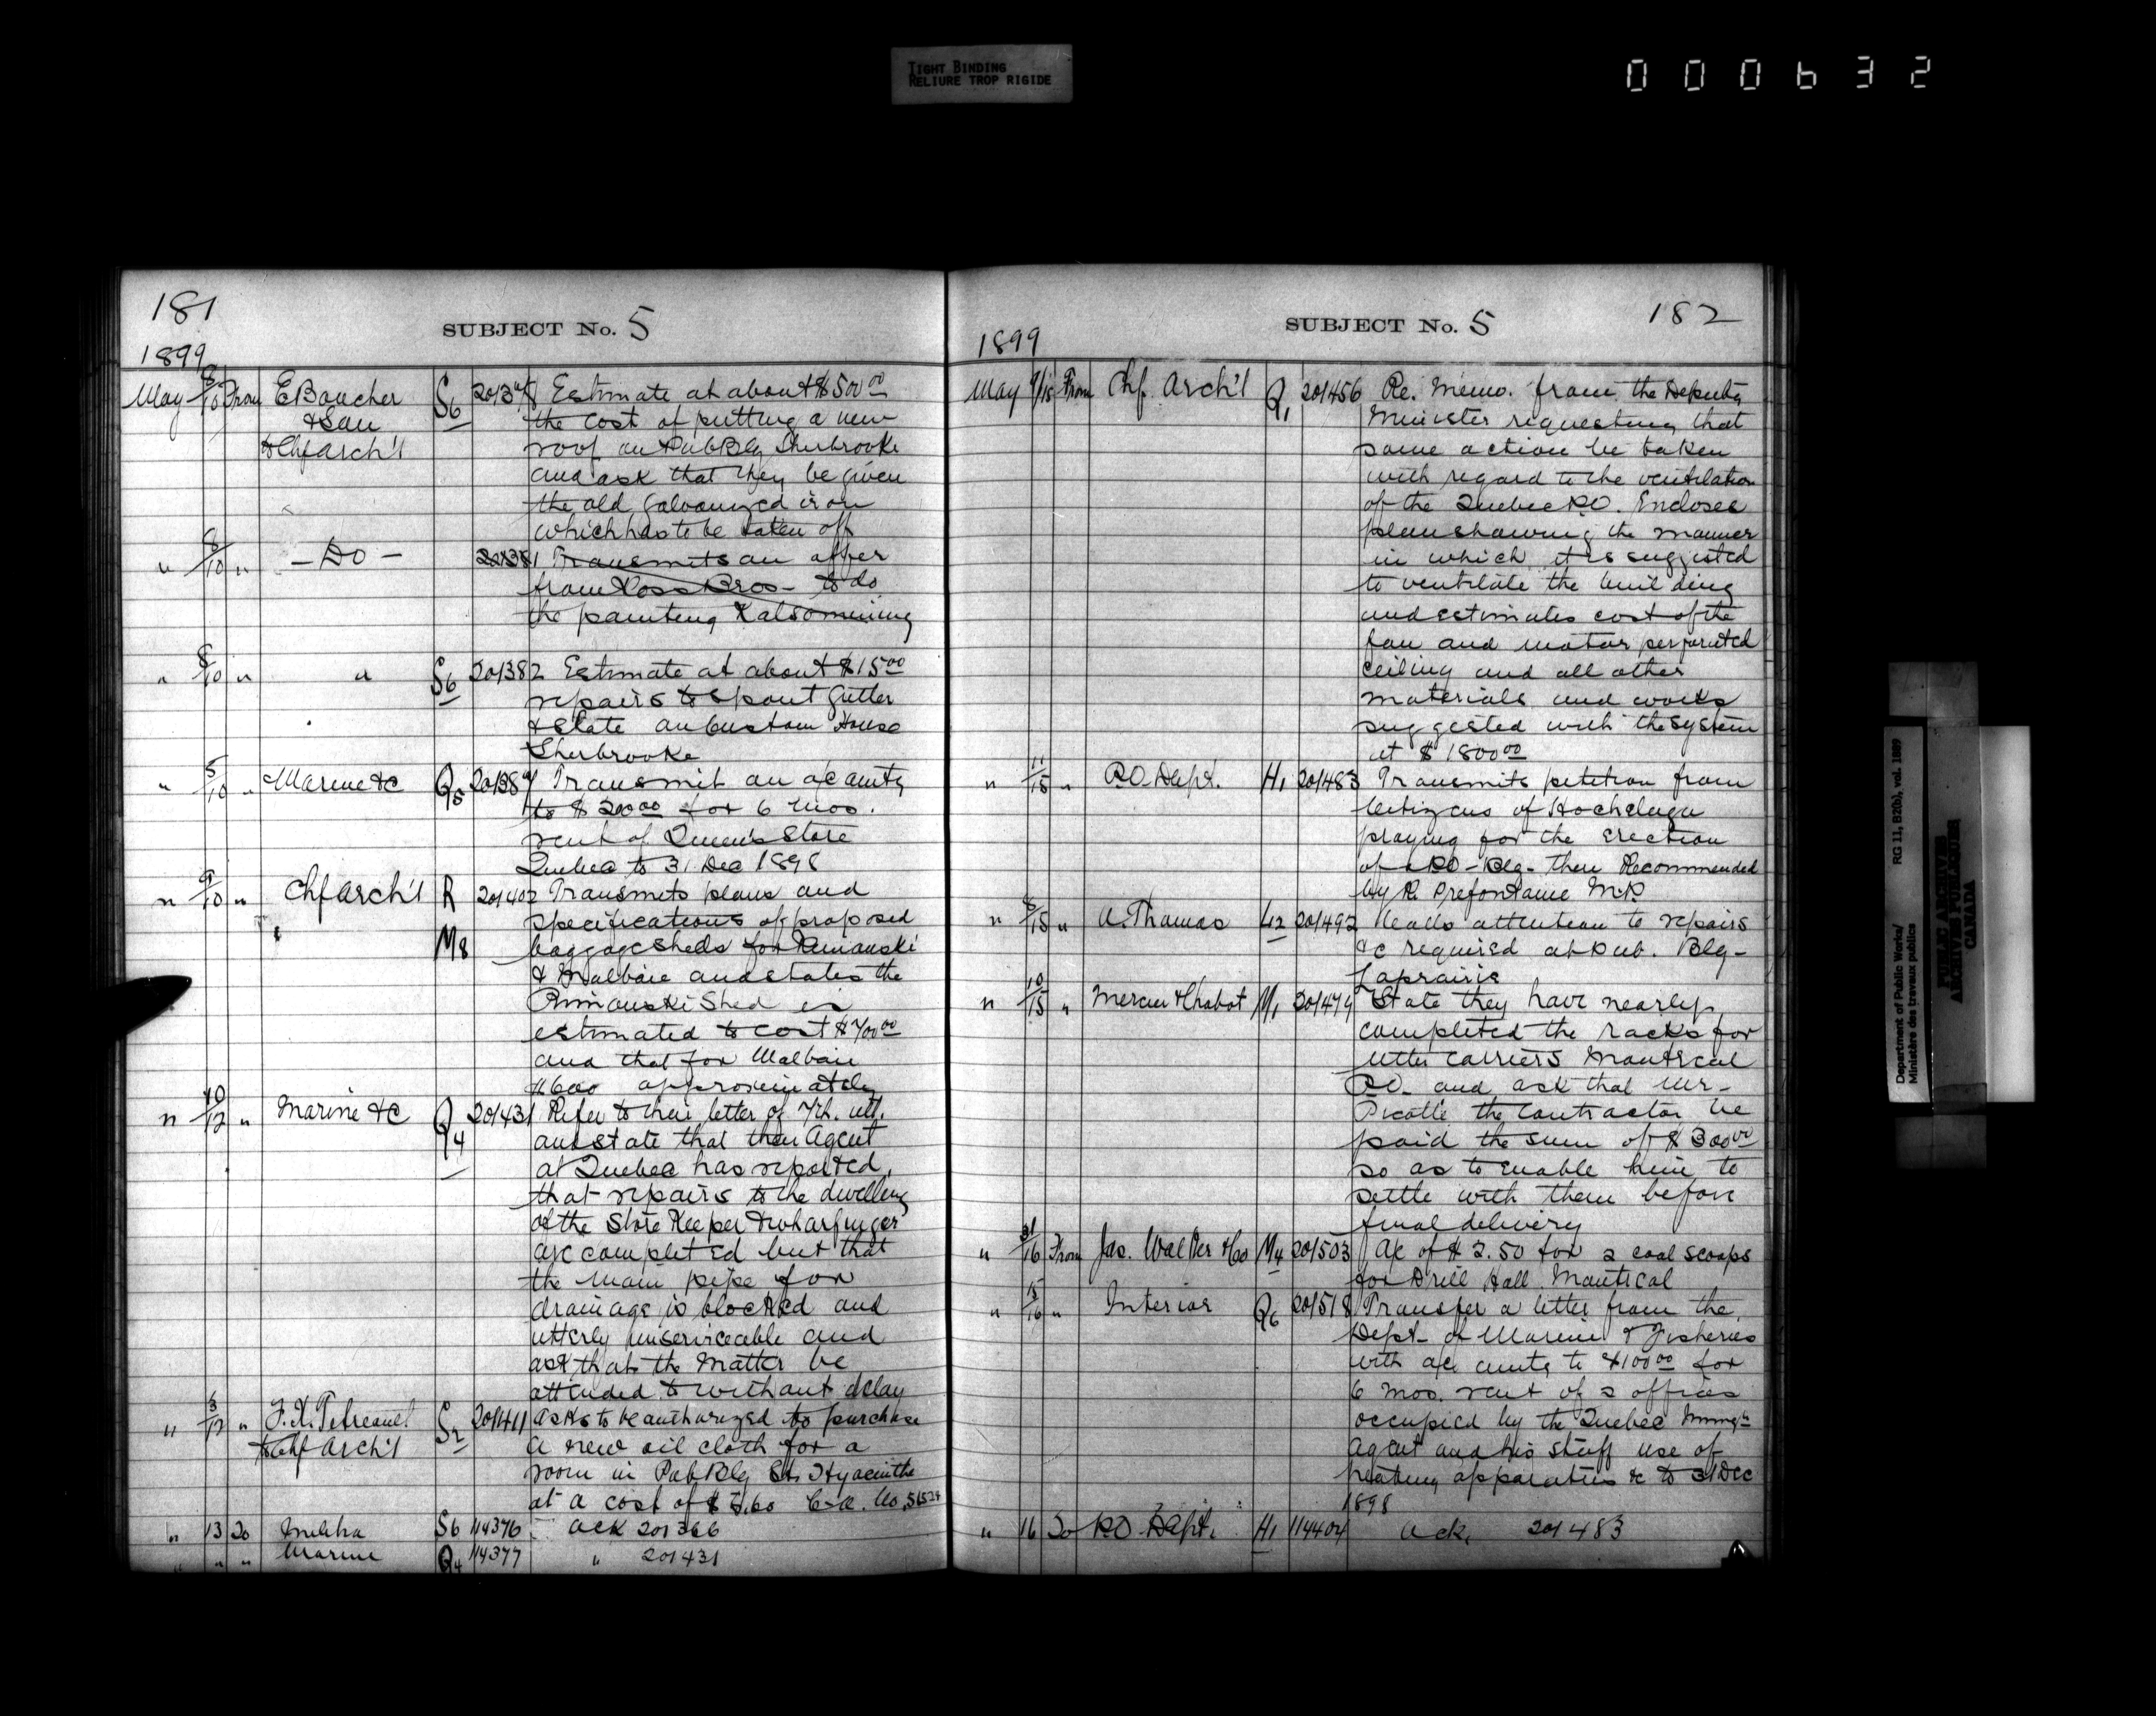 TIGHT BINDING
RELIURE TROP RIGIDE
000632
181
SUBJECT No. 5
1899
May 8/10 From E Boucher S6 Estimate at about $500 00
& Son the cost of putting a new
to Chf Arch'l roof on Pub Blg Sherbrooke
and ask that they be given
the old galvanized iron
which has to be taken off
" 8/10 " - Do - 201381 Transmits an offer
from Ross Bros - to do
the painting Kalsomining
" 8/10 " " S6 201382 Estimate at about $15 00
repairs to spout gutter
& slate on Custom House
Sherbrooke
" 5/10 " Marine &c Q5 Transmit an a/c amtg
to $200 00 for 6 mos.
rent of Queen's Store
Quebec to 31 Dec 1898
" 9/10 " Chf Arch'l R 201402 Transmits plans and
specifications of proposed
M8 baggage sheds for Rimouski
& Malbaie and states the
Rimouski Shed is
estimated to cost $700 00
and that for Malbaie
$600 approximately
" 10/12 " Marine &c Q4 201431 Refer to their letter of 7th. ult.
and state that their Agent
at Quebec has reported,
that repairs to the dwelling
of the Store Keeper & wharfinger
are completed but that
the main pipe for
drainage is blocked and
utterly unserviceable and
ask that the matter be
attended to without delay
" 8/12 " F. X. S2 201411 Asks to be authorized to purchase
to Chf Arch'l a new oil cloth for a
room in Pub Blg St. Hyacinthe
at a cost of
" 13 To Militia S6 114376 Ack 201366
" " " Marine Q4 114377 " 201431
182
SUBJECT No. 5
1899
May 9/15 From Chf. Arch'l Q1 201456 Re. Memo. from the Deputy
Minister requesting that
some action be taken
with regard to the ventilation
of the Quebec P.O. Encloses
plan showing the manner
in which it is suggested
to ventilate the building
and estimates cost of the
fan and motor perforated
ceiling and all other
materials and works
suggested with the system
at $1800 00
" 11/15 " P.O. Dept. H1 201483 Transmits petition from
Citizens of Hochelaga
praying for the erection
of a P.O - Blg - there Recommended
by R. Prefontaine M.P.
" 8/15 " A. Thomas L12 201492 Calls attention to repairs
&c required at Pub. Blg -
Laprairie
" 10/15 " Mercier & Chabot M1 201479 State they have nearly
completed the racks for
letter carriers Montreal
P.O. and ask that Mr -
the Contractor be
paid the sum of $300 00
so as to enable him to
settle with them before
final delivery
" 31/16 From Jas. Walker & Co M4 201503 A/c of for 2 coal scoops
for Drill Hall Montreal
" 15/16 " Interior Q6 201518 Transfer a letter from the
Dept - of Marine & Fisheries
with a/c amtg to $100 00 for
6 mos. rent of 2 offices
occupied by the Quebec Immg'n
Agent and his staff use of
heating apparatus &c to 31 Dec
1898
" 16 To P.O Dept. H1 114404 Ack. 201483
Department of Public Works/ RG 11, B2(b), vol. 1889
Ministère des travaux publics
PUBLIC ARCHIVES
ARCHIVES PUBLIQUES
CANADA